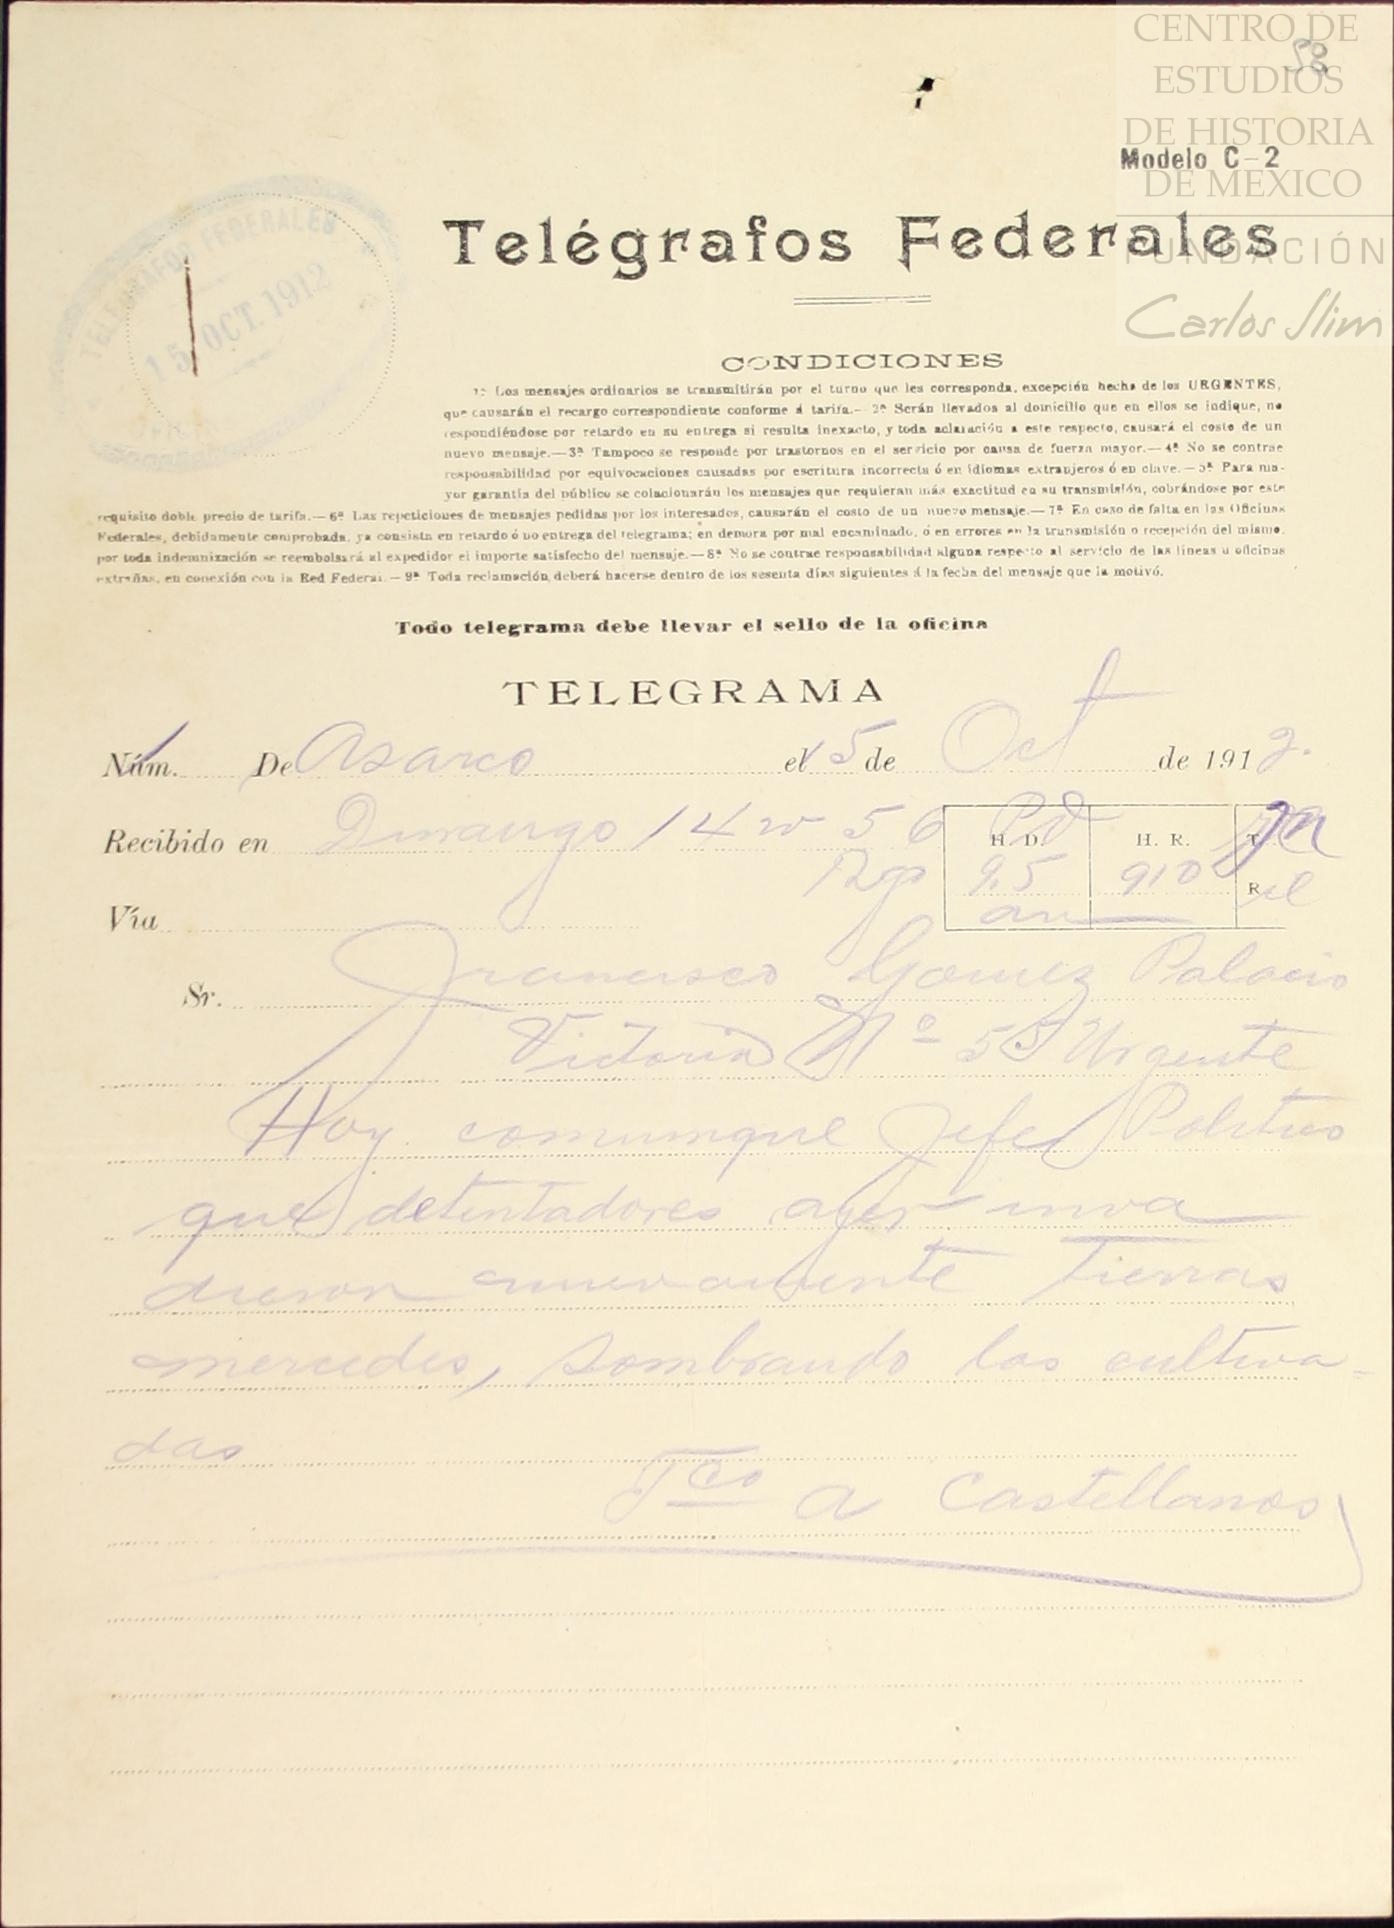 CENTRO DE
ESTUDIOS
DE HISTORIA
DE MEXICO
FUNDACIÓN
Carlos Slim
58
Modelo C-2
TELEGRAFOS FEDERALES
15 OCT. 1912
Telégrafos Federales
CONDICIONES
1ª Los mensajes ordinarios se transmitirán por el turno que les corresponda, excepción hecha de los URGENTES,
que causarán el recargo correspondiente conforme á tarifa.—2ª Serán llevados al domicilio que en ellos se indique, no
respondiéndose por retardo en su entrega si resulta inexacto, y toda aclaración a este respecto, causará el costo de un
nuevo mensaje.—3ª Tampoco se responde por trastornos en el servicio por causa de fuerza mayor.—4ª No se contrae
responsabilidad por equivocaciones causadas por escritura incorrecta ó en idiomas extranjeros ó en clave.—5ª Para ma-
yor garantía del público se colacionarán los mensajes que requieran más exactitud en su transmisión, cobrándose por este
requisito doble precio de tarifa.—6ª Las repeticiones de mensajes pedidas por los interesados, causarán el costo de un nuevo mensaje.—7ª En caso de falta en las Oficinas
Federales, debidamente comprobada, ya consista en retardo ó no entrega del telegrama; en demora por mal encaminado, ó en errores en la transmisión o recepción del mismo,
por toda indemnización se reembolsará al expedidor el importe satisfecho del mensaje.—8ª No se contrae responsabilidad alguna respecto al servicio de las líneas u oficinas
extrañas, en conexión con la Red Federal.—9ª Toda reclamación deberá hacerse dentro de los sesenta días siguientes á la fecha del mensaje que la motivó.
Todo telegrama debe llevar el sello de la oficina
TELEGRAMA
Núm. 1 De Asarco el 15 de Oct de 1912.
Recibido en Durango 14 w 56 Pd H. D. H. R. T.
Dgo 9.5 910 R
Vía am
Sr. Francisco Gomez Palacio
Victoria Nº 55 Urgente
Hoy comunique Jefe Politico
que detentadores ayer inva
dieron nuevamente tierras
mercedes, sombrando las cultiva-
das
Fco A Castellanos